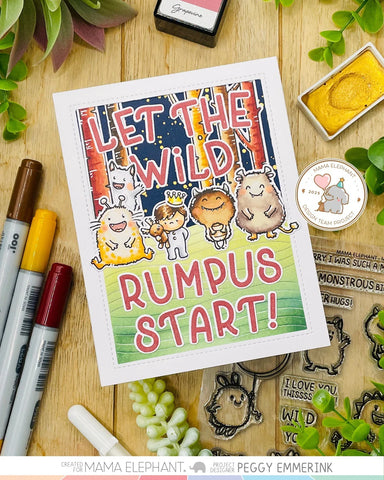 Grapevine
LET THE
WiLD
RUMPUS
START!
MAMA ELEPHANT
2023
DESIGN TEAM PROJECT
MAMA ELEPHANT
I WAS SUCH A
MONSTROUS
HUGS!
I LOVE YOU
THISSSS
WILD
YO
CREATED FOR MAMA ELEPHANT. PROJECT DESIGNER PEGGY EMMERINK